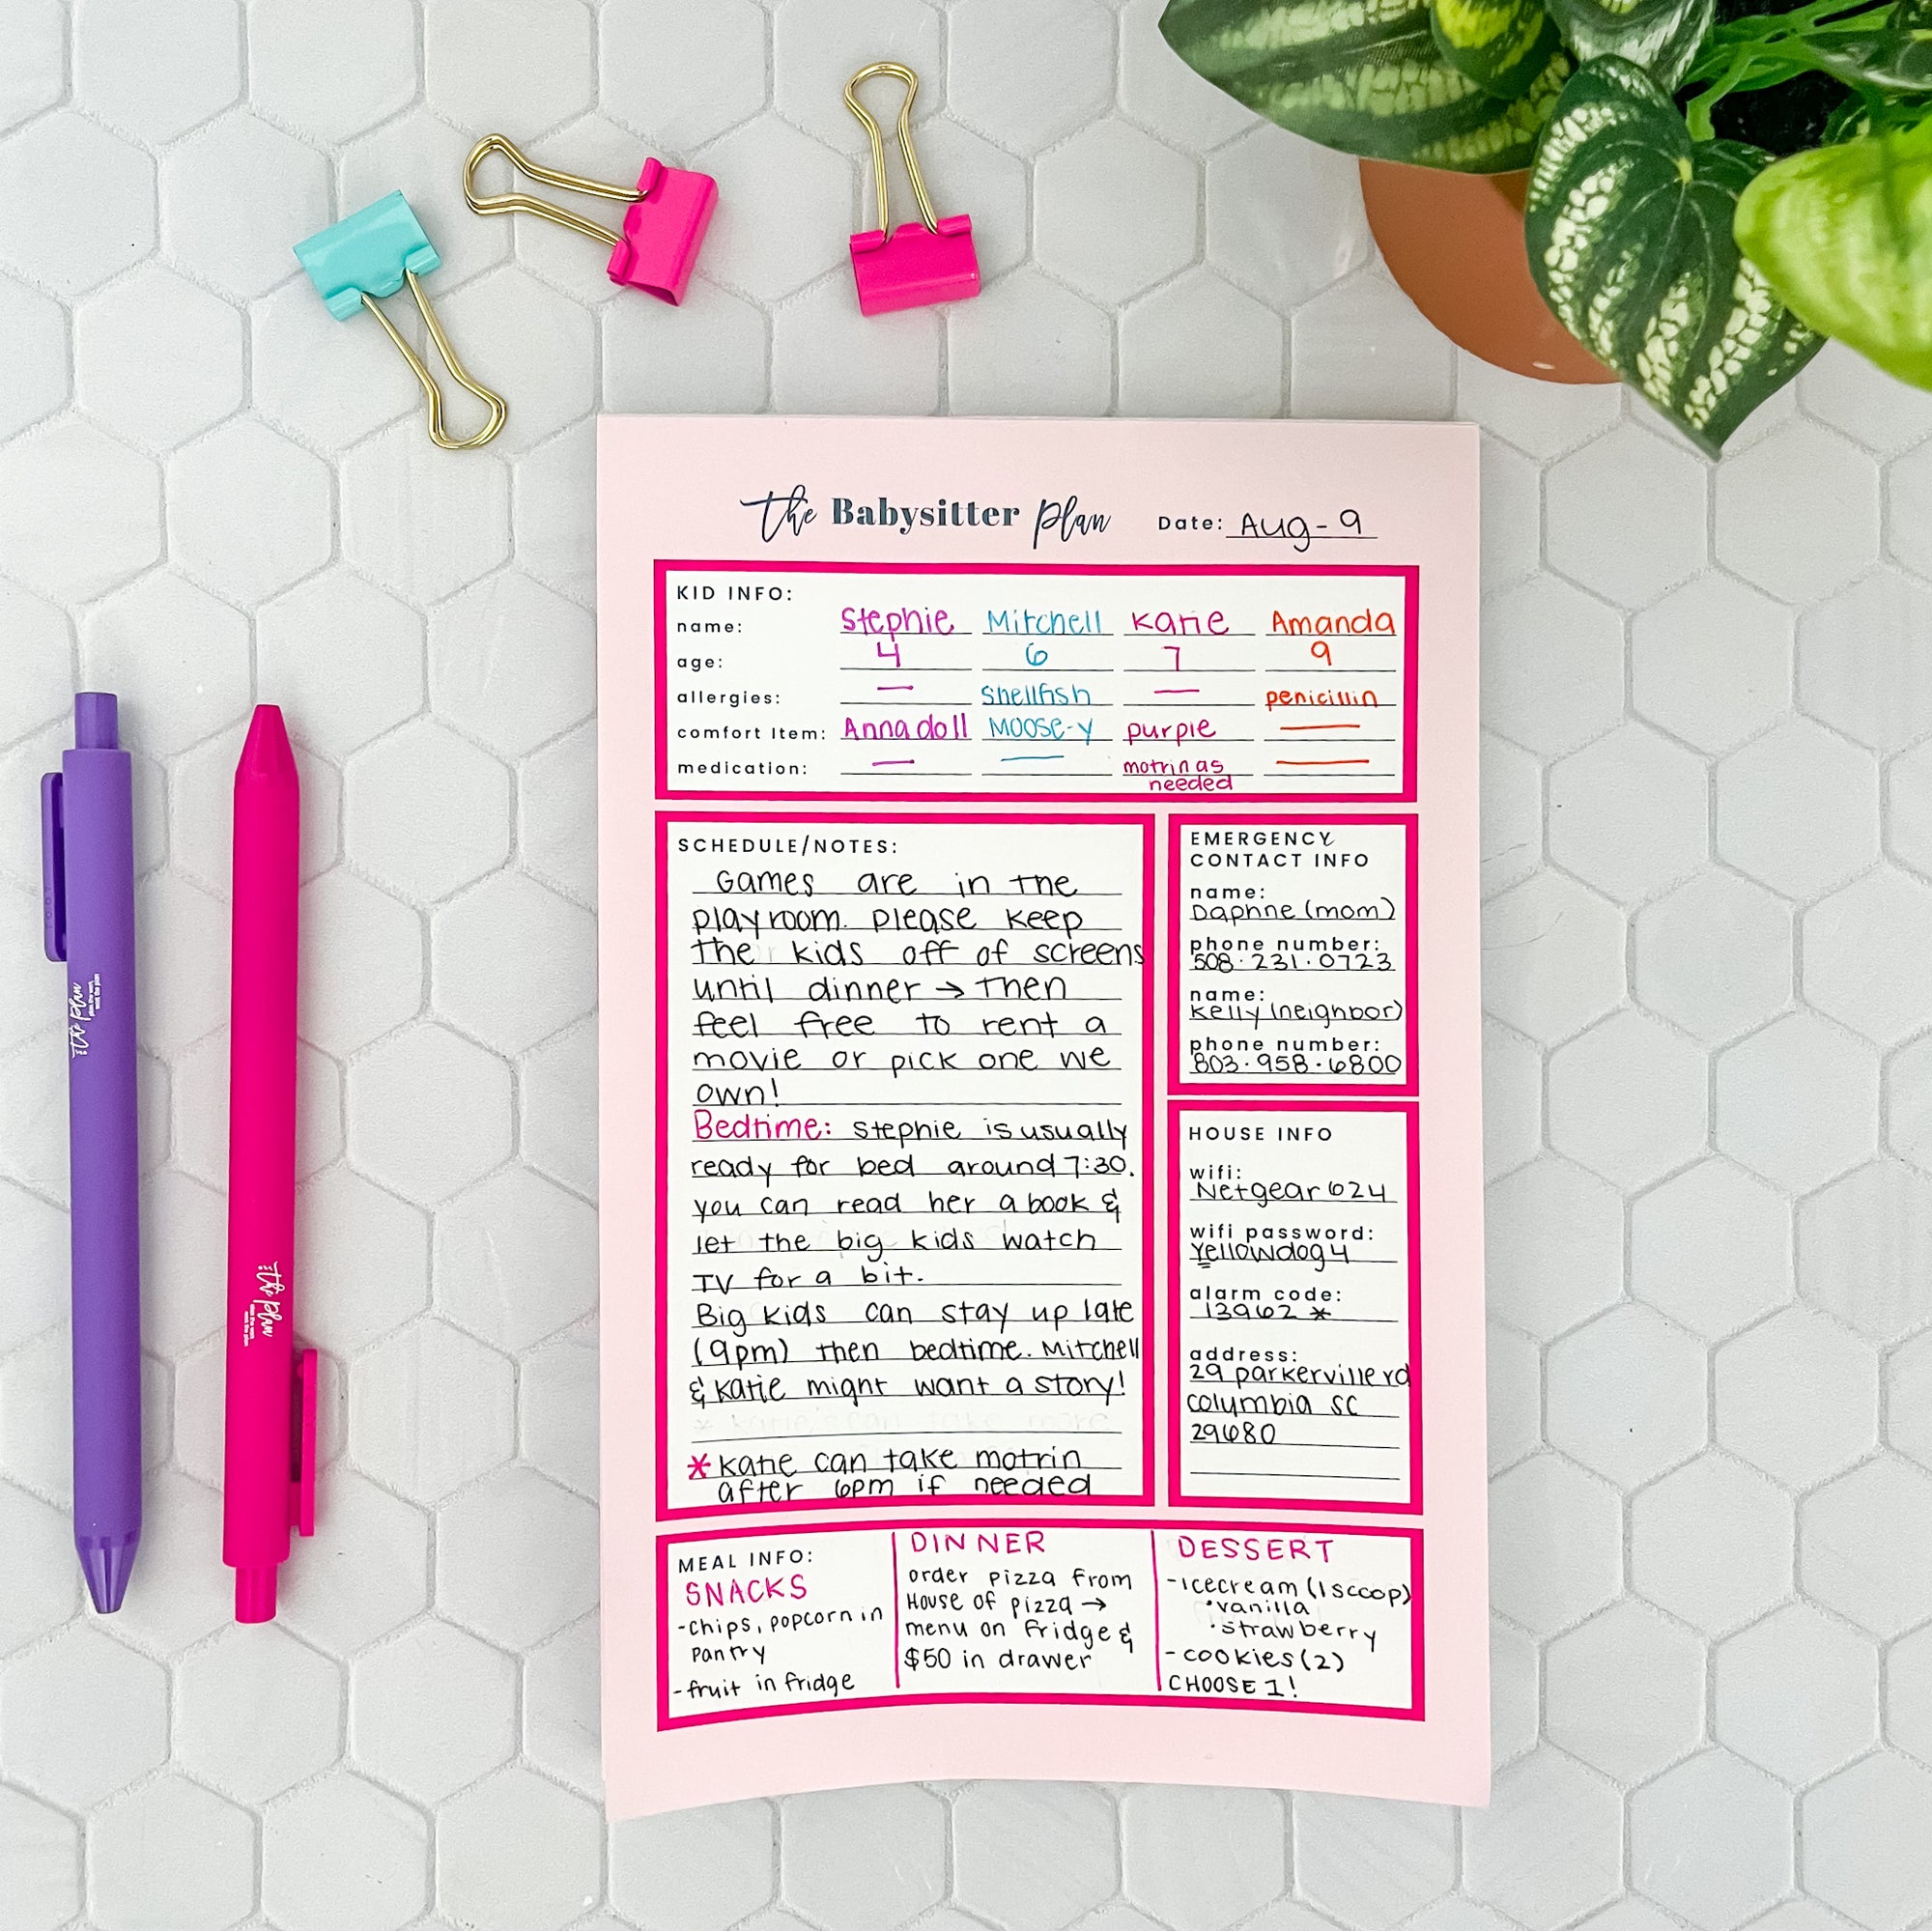 the Babysitter plan Date: Aug-9
KID INFO:
name: Stephie Mitchell Katie Amanda
age: 4 6 7 9
allergies: — shellfish — penicillin
comfort Item: Anna doll Moose-y purple —
medication: — — motrin as needed —
SCHEDULE/NOTES:
Games are in the
playroom. please keep
the kids off of screens
until dinner → then
feel free to rent a
movie or pick one we
own!
Bedtime: Stephie is usually
ready for bed around 7:30.
you can read her a book &
let the big kids watch
TV for a bit.
Big kids can stay up late
(9pm) then bedtime. Mitchell
& Katie might want a story!
* Katie can take motrin
after 6pm if needed
EMERGENCY
CONTACT INFO
name:
Daphne (mom)
phone number:
508·231·0723
name:
Kelly (neighbor)
phone number:
803·958·6800
HOUSE INFO
wifi:
Netgear 624
wifi password:
Yellowdog4
alarm code:
13962 *
address:
29 parkerville rd
columbia sc
29680
MEAL INFO:
SNACKS
-chips, popcorn in
pantry
-fruit in fridge
DINNER
order pizza from
House of pizza →
menu on fridge &
$50 in drawer
DESSERT
-icecream (1 scoop)
•vanilla
•strawberry
-cookies (2)
CHOOSE 1!
the plan
the plan